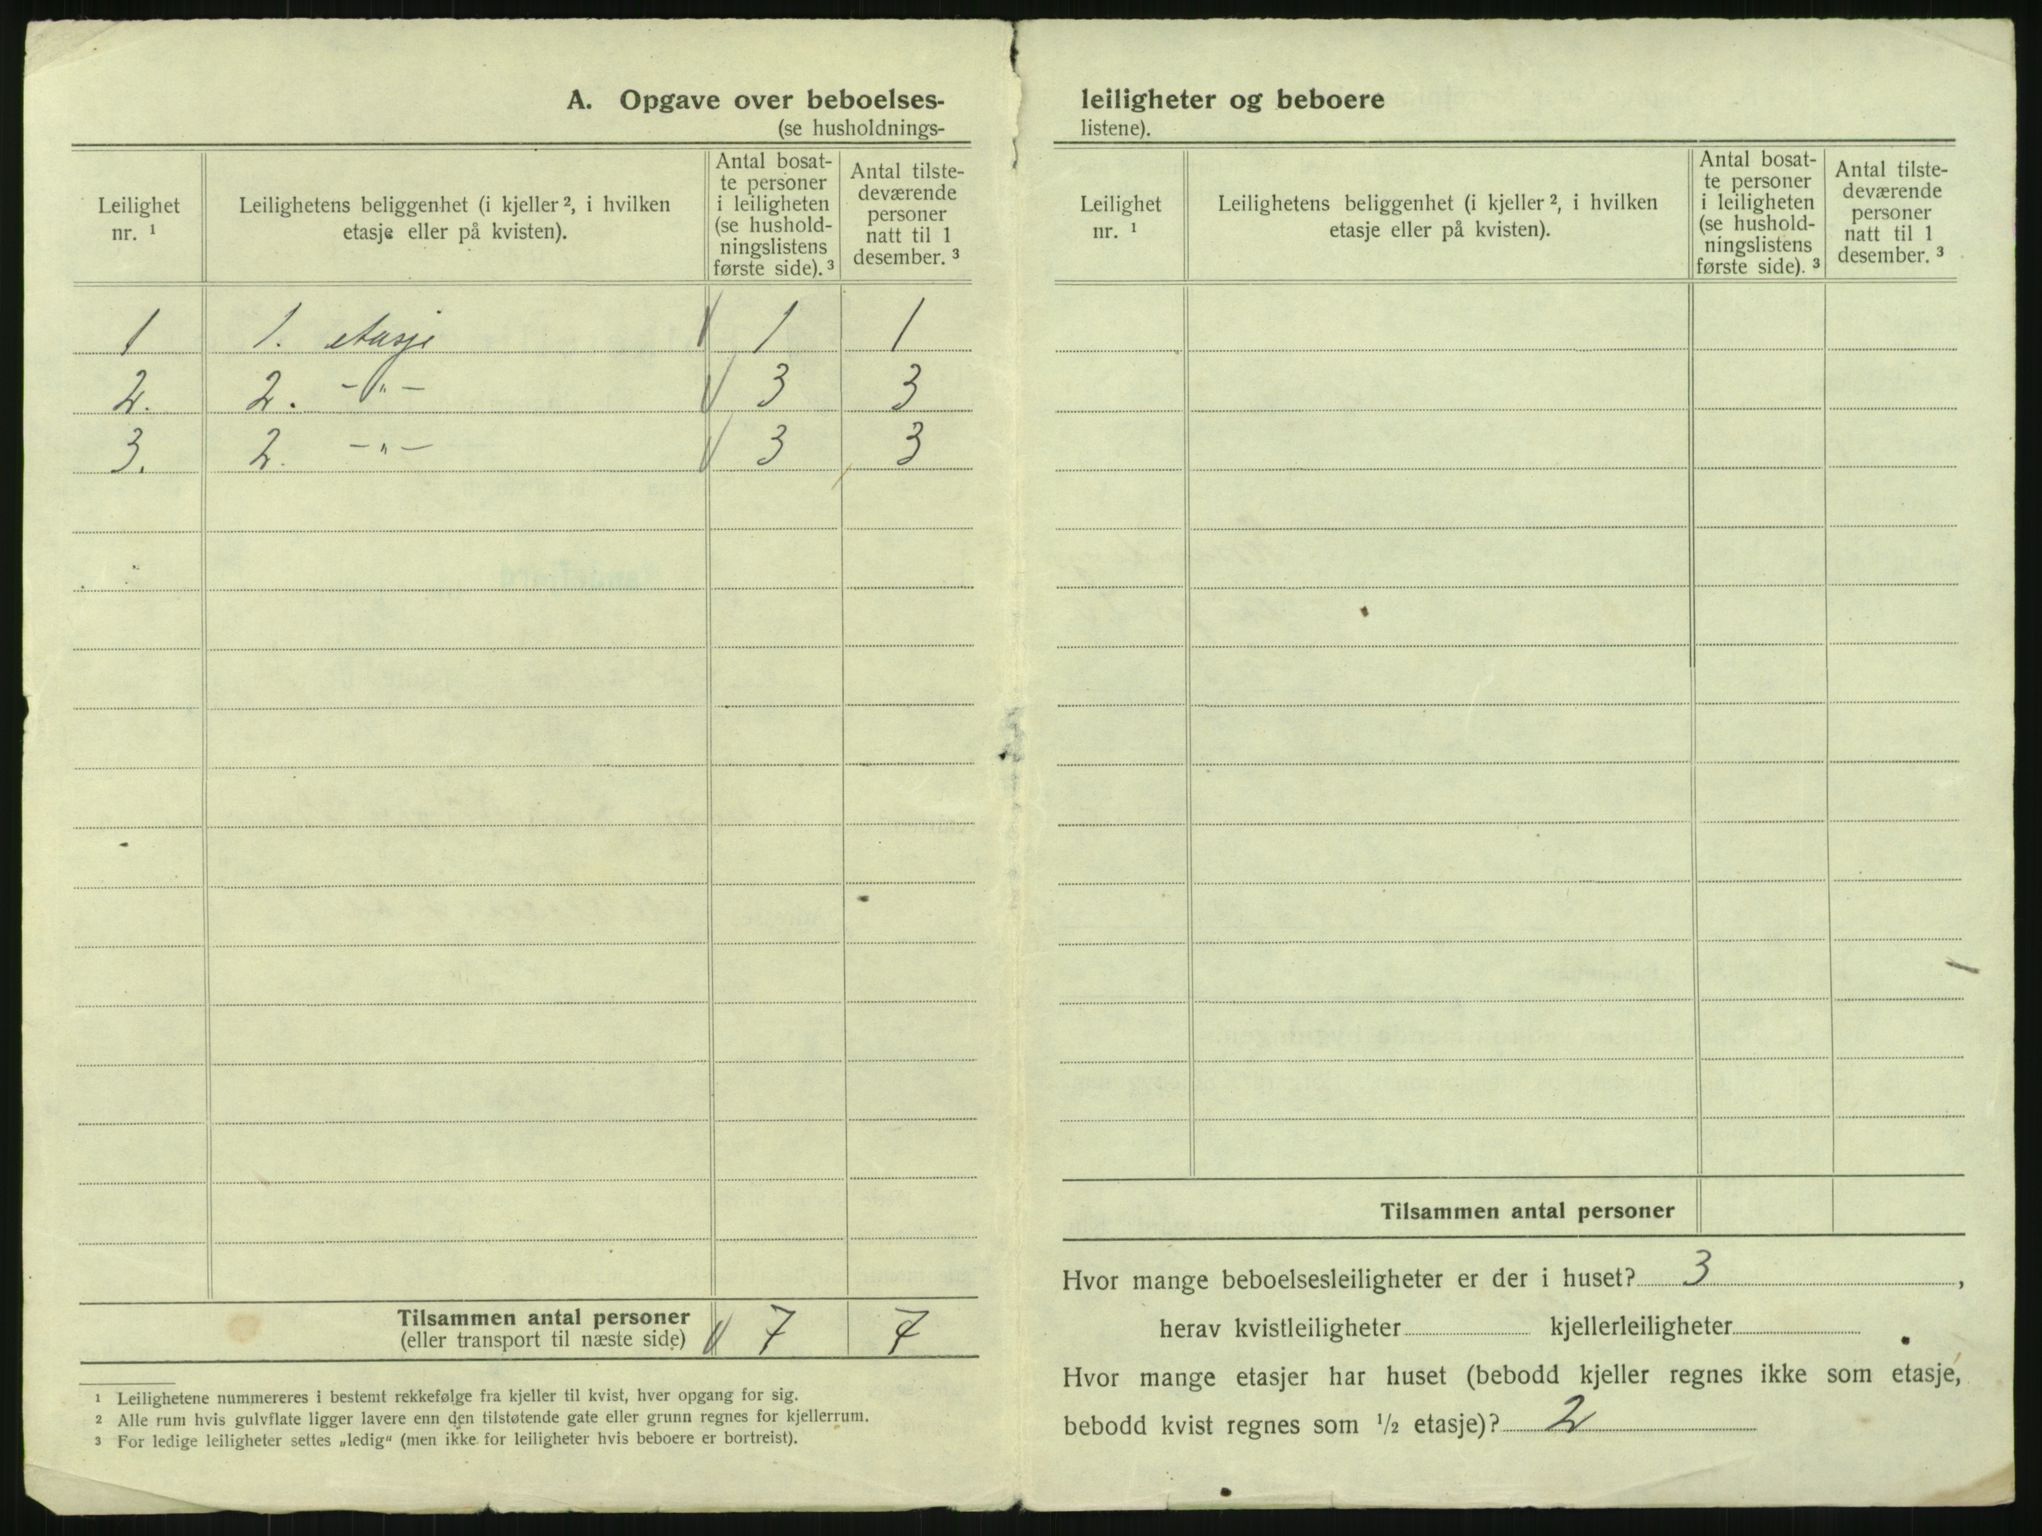 A. Opgave over beboelses-
(se husholdnings-
Leilighet
nr. ¹
Leilighetens beliggenhet (i kjeller ², i hvilken
etasje eller på kvisten).
Antal bosat-
te personer
i leiligheten
(se hushold-
ningslistens
første side). ³
Antal tilste-
deværende
personer
natt til 1
desember. ³
1 1. etasje 1 1
2. 2. -"- 3 3
3. 2. -"- 3 3
Tilsammen antal personer
(eller transport til næste side) 7 7
¹ Leilighetene nummereres i bestemt rekkefølge fra kjeller til kvist, hver opgang for sig.
² Alle rum hvis gulvflate ligger lavere enn den tilstøtende gate eller grunn regnes for kjellerrum.
³ For ledige leiligheter settes „ledig“ (men ikke for leiligheter hvis beboere er bortreist).
leiligheter og beboere
listene).
Leilighet
nr. ¹
Leilighetens beliggenhet (i kjeller ², i hvilken
etasje eller på kvisten).
Antal bosat-
te personer
i leiligheten
(se hushold-
ningslistens
første side). ³
Antal tilste-
deværende
personer
natt til 1
desember. ³
Tilsammen antal personer
Hvor mange beboelsesleiligheter er der i huset? 3 ,
herav kvistleiligheter kjellerleiligheter
Hvor mange etasjer har huset (bebodd kjeller regnes ikke som etasje,
bebodd kvist regnes som ½ etasje)? 2